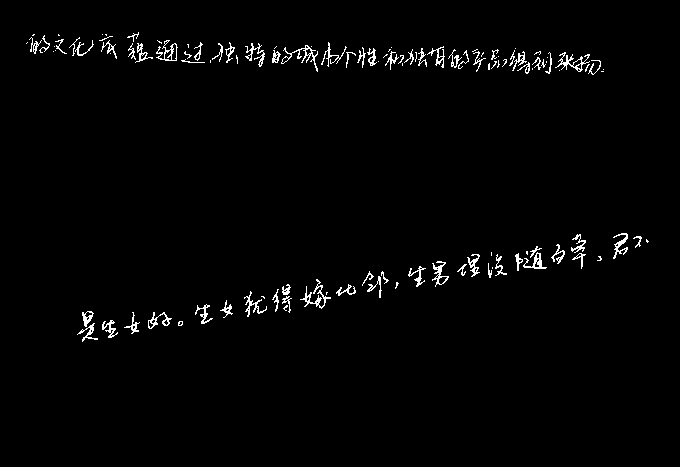 的文化底蕴通过独特的城市个性和独有的产品得到张扬.
是生女好。生女犹得嫁比邻,生男埋没随百草。君不